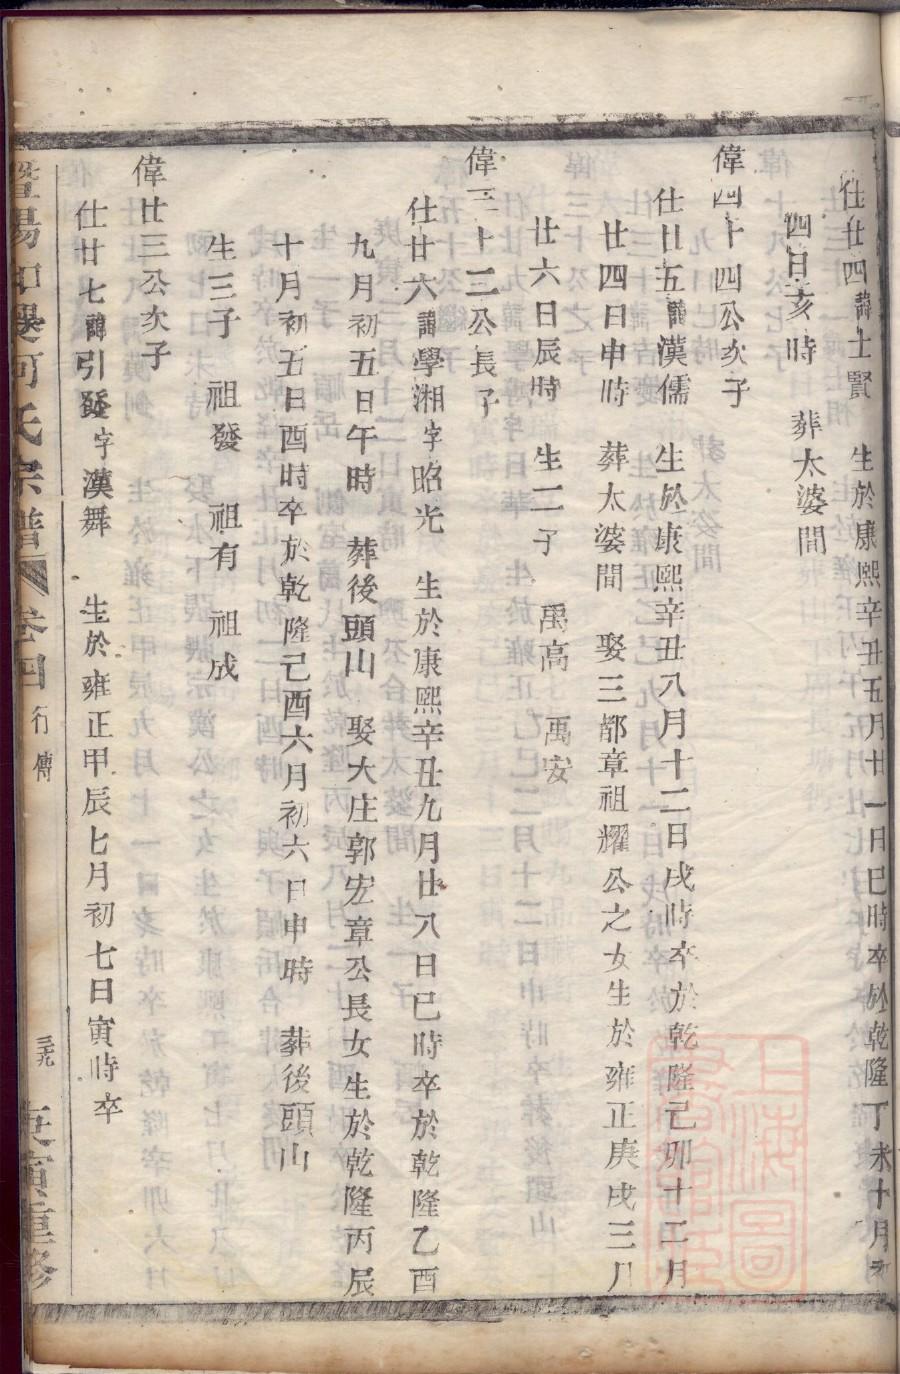 仕廿四諱士賢 生於康熙辛丑五月廿一日巳時卒於乾隆丁未十月初
四日亥時 葬太婆間
偉四十四公次子
仕廿五諱漢儒 生於康熙辛丑八月十二日戌時卒於乾隆己卯十二月
廿四日申時 葬太婆間 娶三都章祖耀公之女生於雍正庚戌三月
廿六日辰時 生二子 禹高 禹安
偉三十三公長子
仕廿六諱學湘字昭光 生於康熙辛丑九月廿八日巳時卒於乾隆乙酉
九月初五日午時 葬後頭山 娶大庄郭宏章公長女生於乾隆丙辰
十月初五日酉時卒於乾隆己酉六月初六日申時 葬後頭山
生三子 祖發 祖有 祖成
偉廿三公次子
仕廿七諱引發字漢舞 生於雍正甲辰七月初七日寅時卒
暨陽 河氏宗譜 卷四 行傳 三九 寅重修
上海圖書館藏